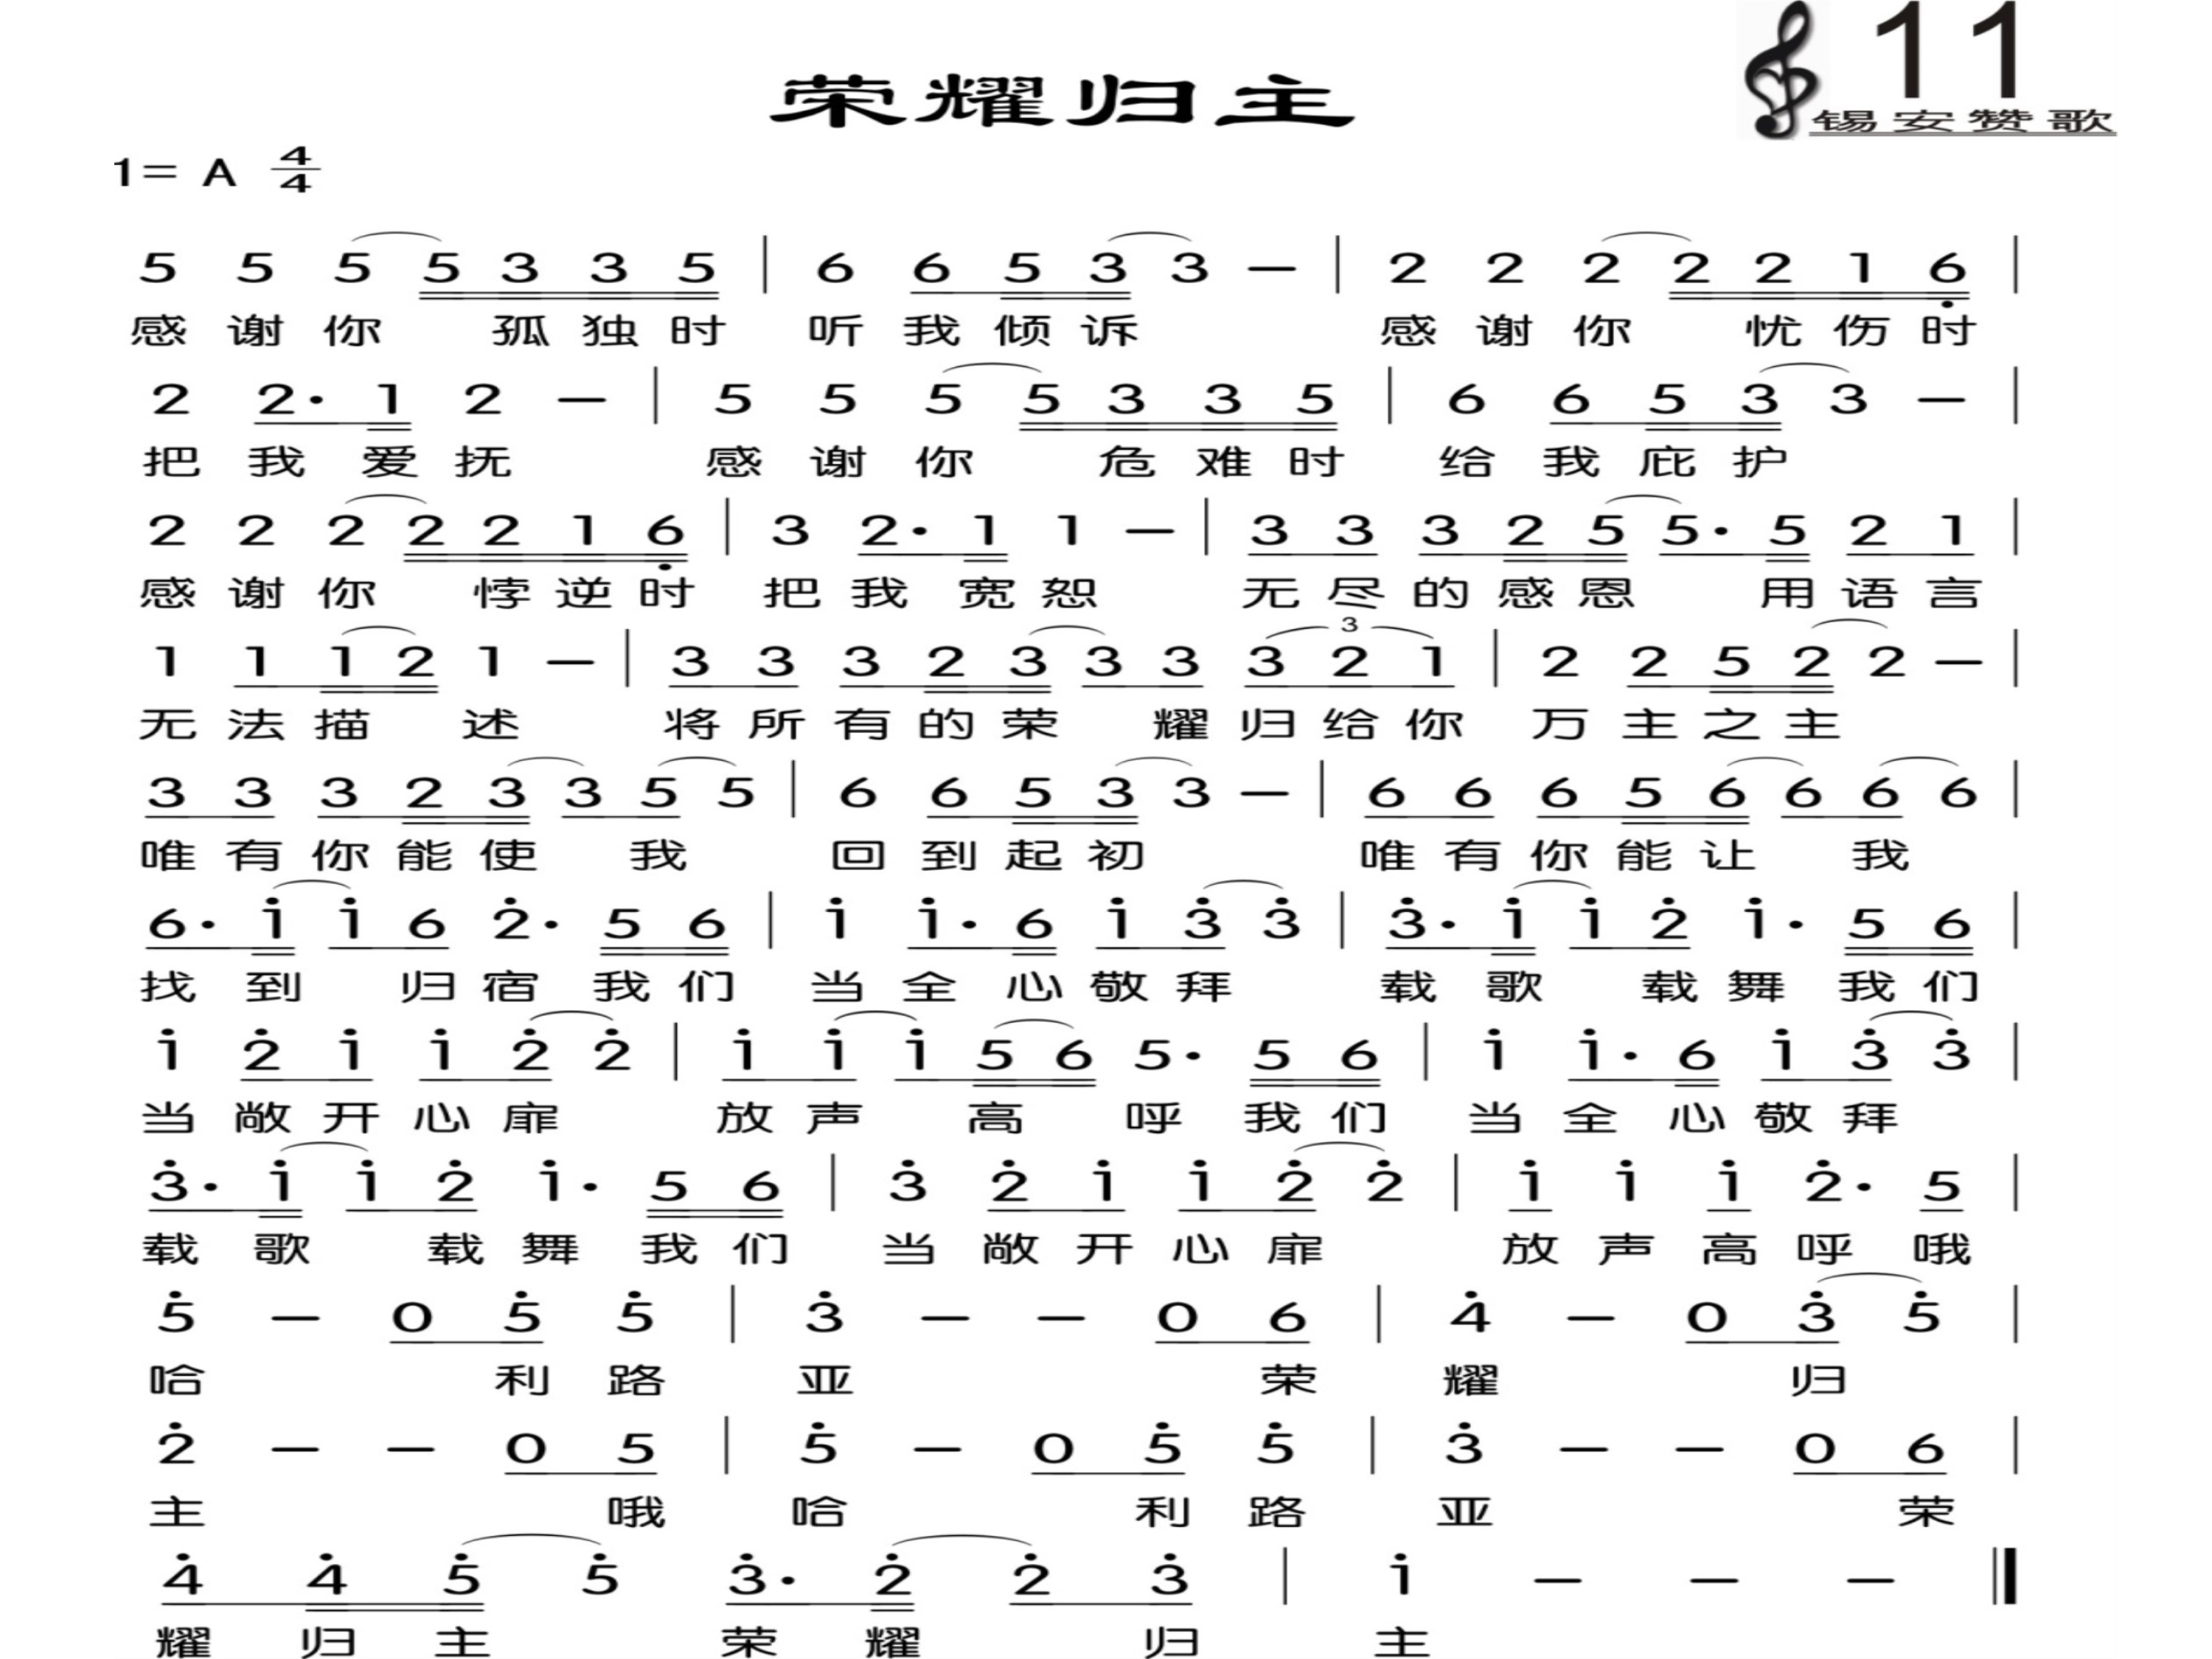 11
荣耀归主
锡安赞歌
1= A 4/4
5 5 5 5 3 3 5 | 6 6 5 3 3 — | 2 2 2 2 2 1 6̣ |
感谢你 孤独时 听我倾诉 感谢你 忧伤时
2 2· 1 2 — | 5 5 5 5 3 3 5 | 6 6 5 3 3 — |
把我爱抚 感谢你 危难时 给我庇护
2 2 2 2 2 1 6̣ | 3 2· 1 1 — | 3 3 3 2 5 5· 5 2 1 |
感谢你 悖逆时 把我宽恕 无尽的感恩 用语言
1 1 1 2 1 — | 3 3 3 2 3 3 3 3 2 1 | 2 2 5 2 2 — |
3
无法描 述 将所有的荣 耀归给你 万主之主
3 3 3 2 3 3 5 5 | 6 6 5 3 3 — | 6 6 6 5 6 6 6 6 |
唯有你能使 我 回到起初 唯有你能让 我
6· i̇ i̇ 6 2̇· 5 6 | i̇ i̇· 6 i̇ 3̇ 3̇ | 3̇· i̇ i̇ 2̇ i̇· 5 6 |
找到 归宿我们 当全心敬拜 载歌 载舞我们
i̇ 2̇ i̇ i̇ 2̇ 2̇ | i̇ i̇ i̇ 5 6 5· 5 6 | i̇ i̇· 6 i̇ 3̇ 3̇ |
当敞开心扉 放声 高 呼我们 当全心敬拜
3̇· i̇ i̇ 2̇ i̇· 5 6 | 3̇ 2̇ i̇ i̇ 2̇ 2̇ | i̇ i̇ i̇ 2̇· 5 |
载歌 载舞我们 当敞开心扉 放声高呼哦
5̇ — 0 5̇ 5̇ | 3̇ — — 0 6 | 4̇ — 0 3̇ 5̇ |
哈 利路 亚 荣 耀 归
2̇ — — 0 5 | 5̇ — 0 5̇ 5̇ | 3̇ — — 0 6 |
主 哦 哈 利路 亚 荣
4̇ 4̇ 5̇ 5̇ 3̇· 2̇ 2̇ 3̇ | i̇ — — — ‖
耀归主 荣耀 归 主